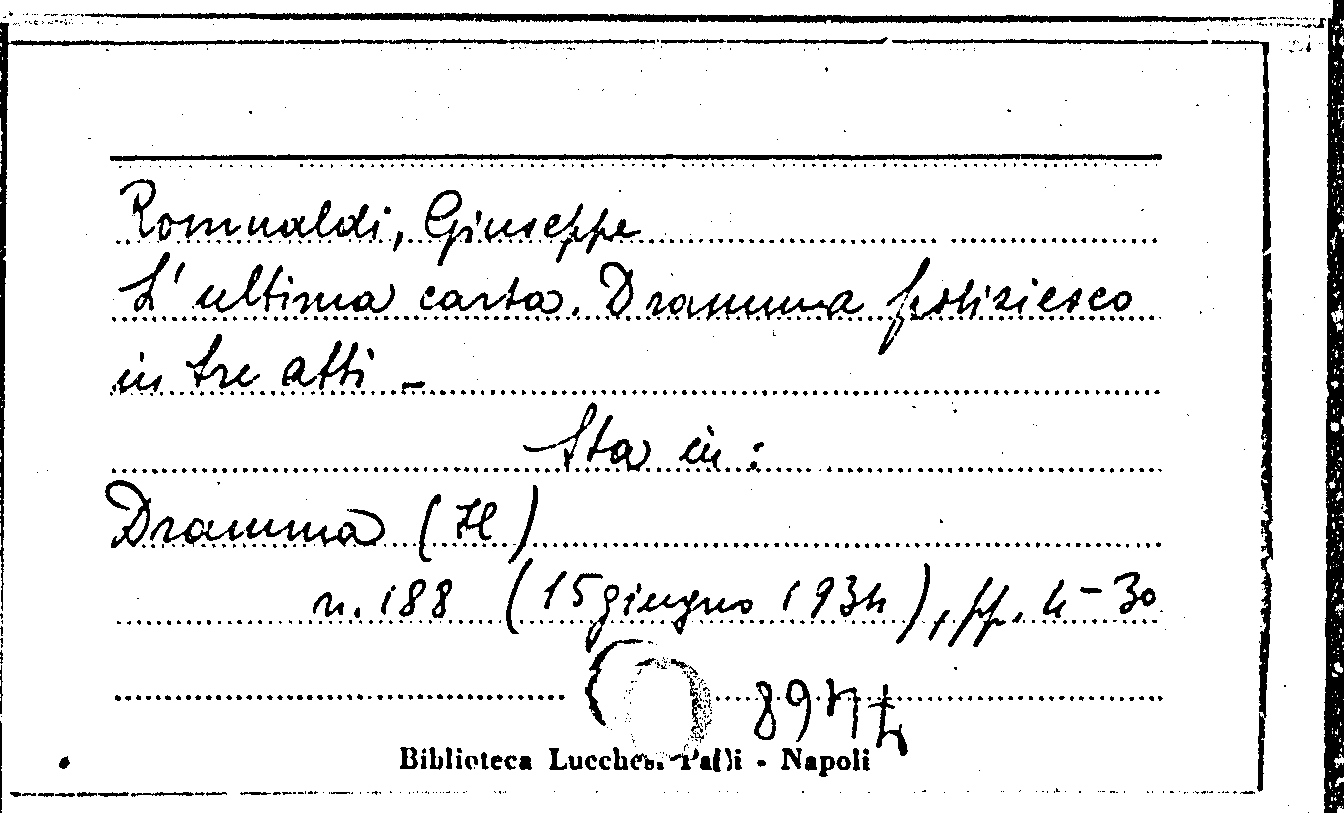 Romualdi, Giuseppe
L'ultima carta. Dramma poliziesco
in tre atti -
Sta in:
Dramma (Il)
n. 188 (15 giugno 1934), pp. 4-30
Biblioteca Lucchesi Palli - Napoli